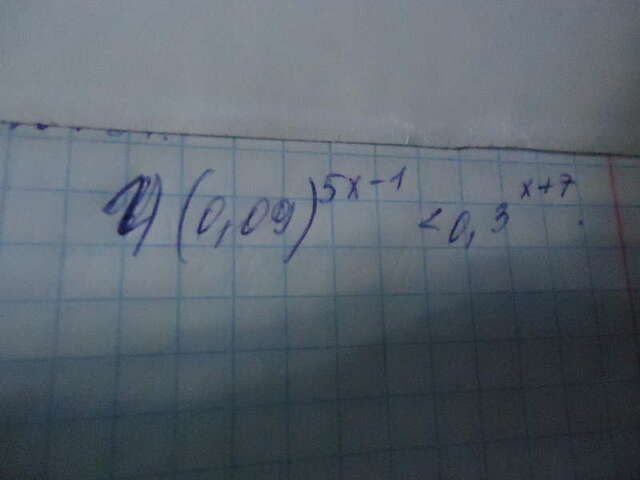 г) (0,09)^{5x-1} < 0,3^{x+7}.